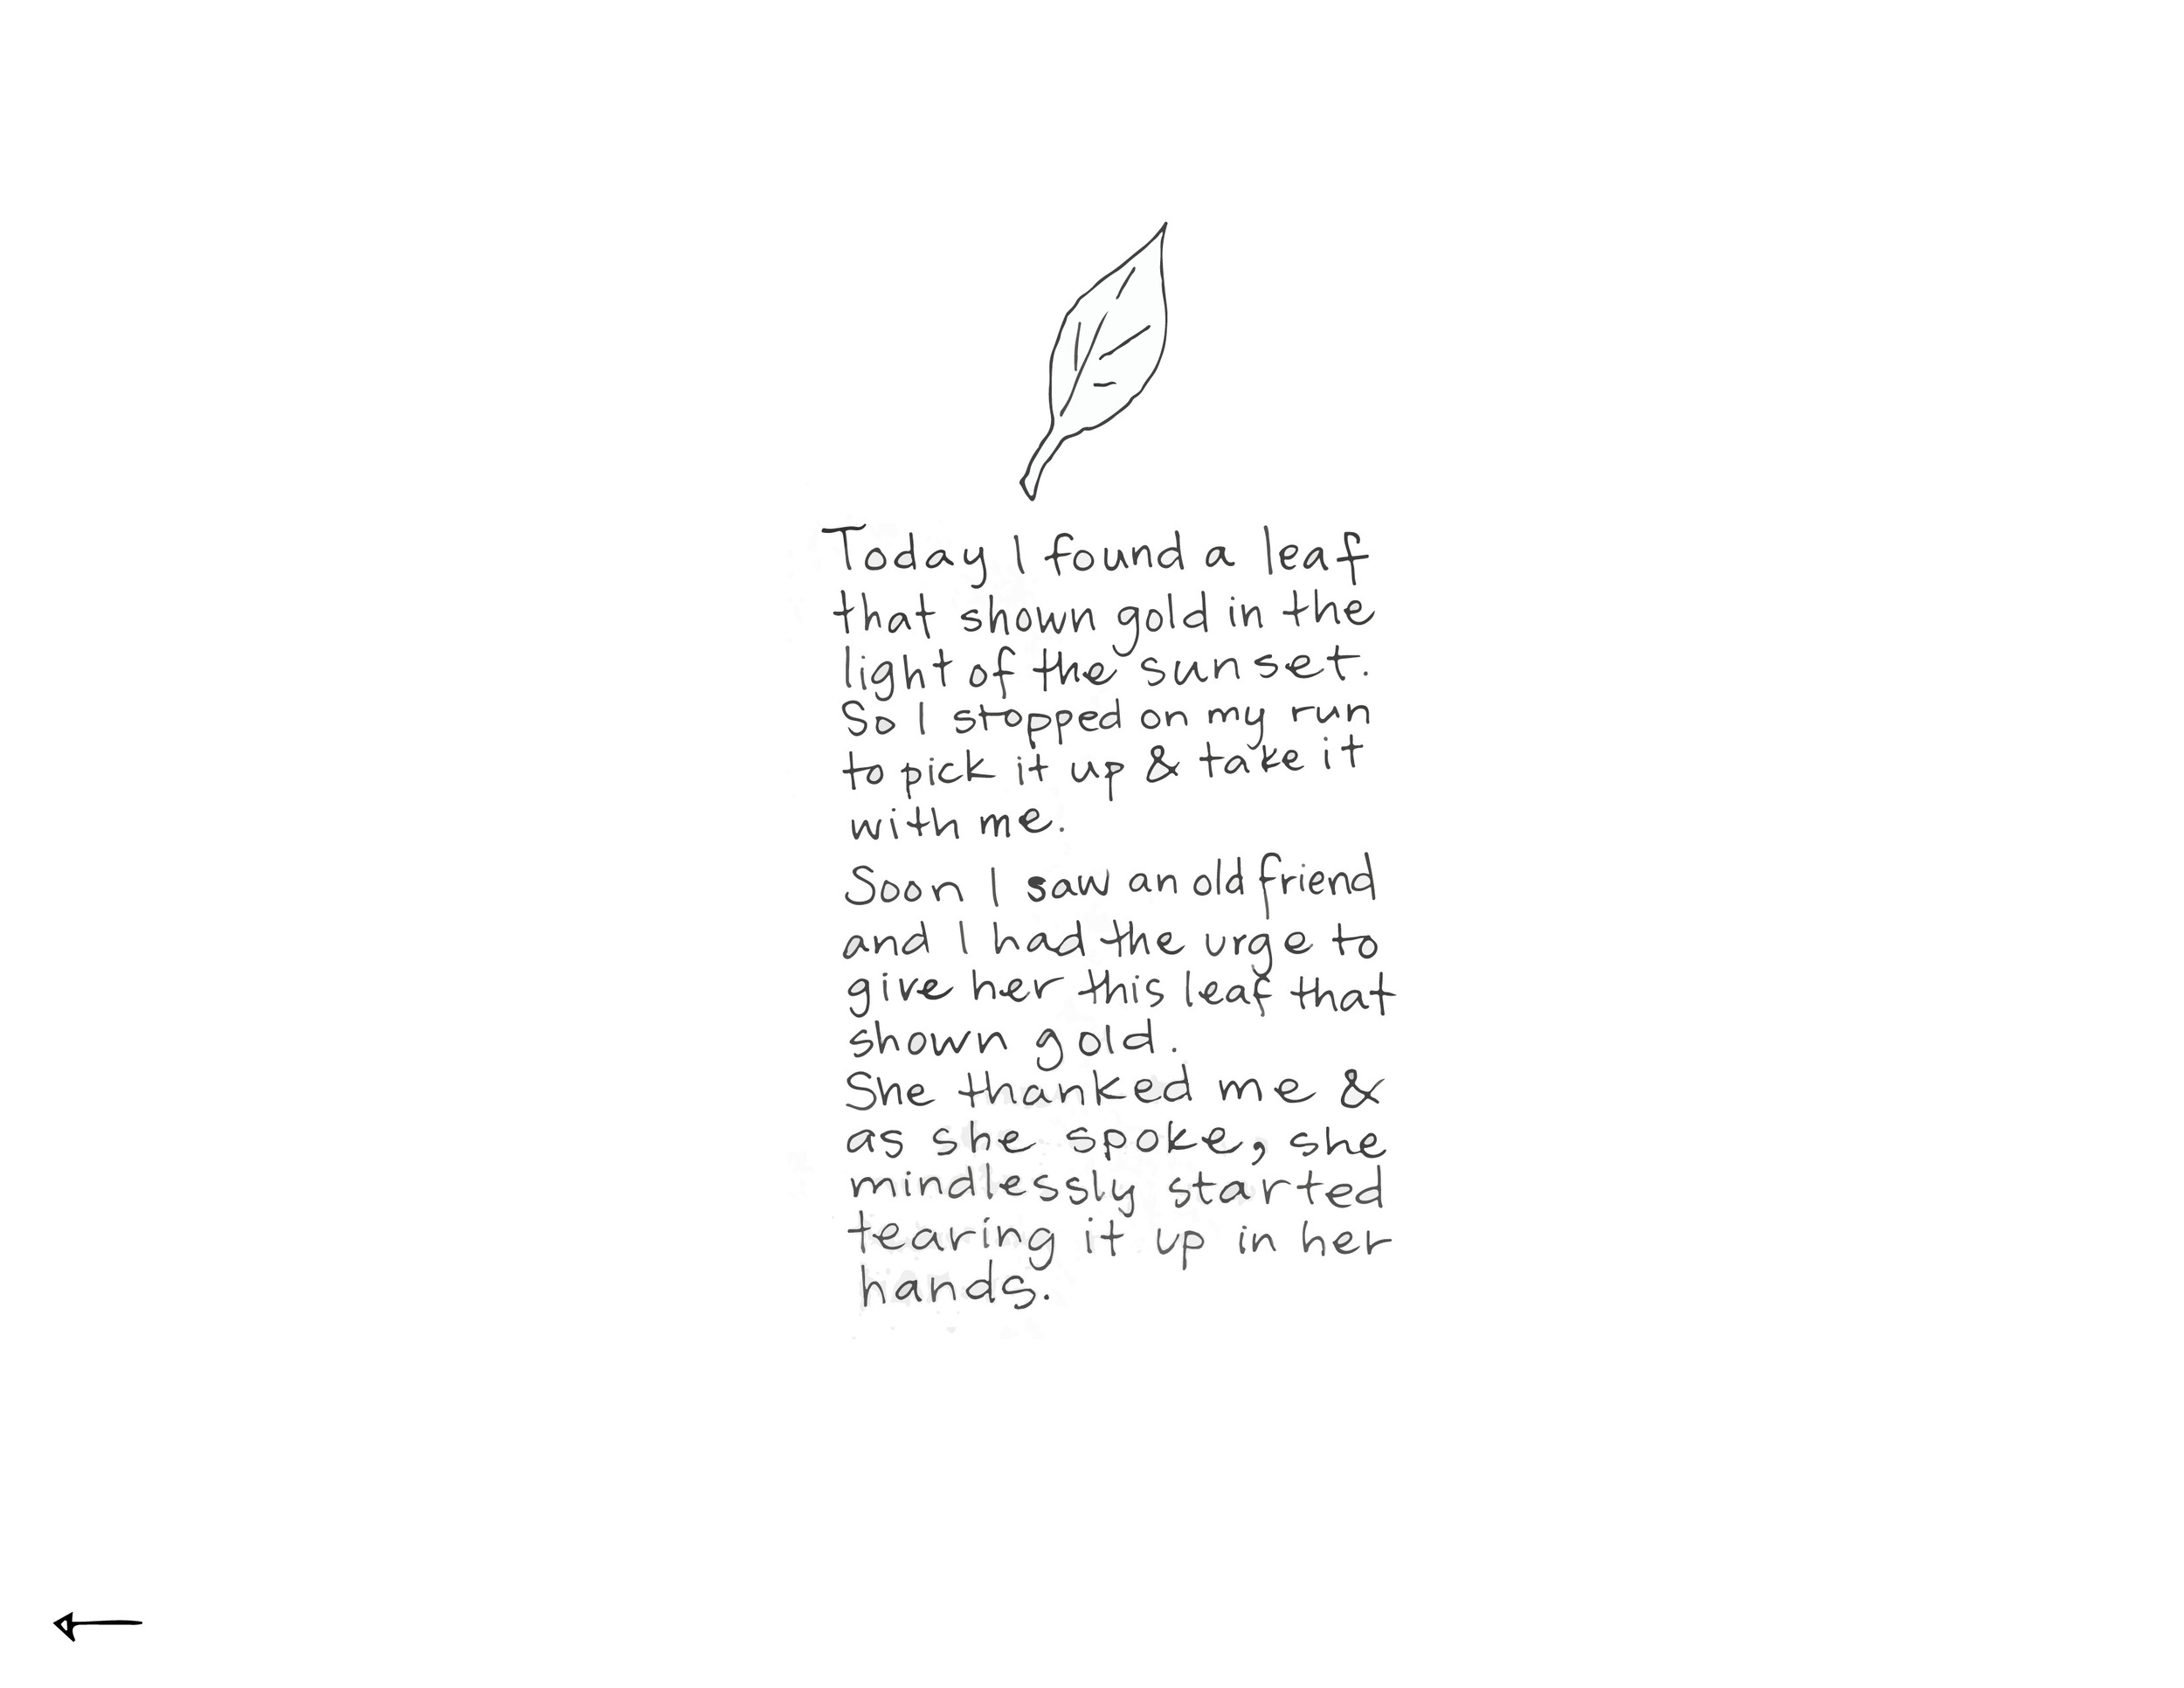 Today I found a leaf
that shown gold in the
light of the sunset.
So I stopped on my run
to pick it up & take it
with me.
Soon I saw an old friend
and I had the urge to
give her this leaf that
shown gold.
She thanked me &
as she spoke, she
mindlessly started
tearing it up in her
hands.